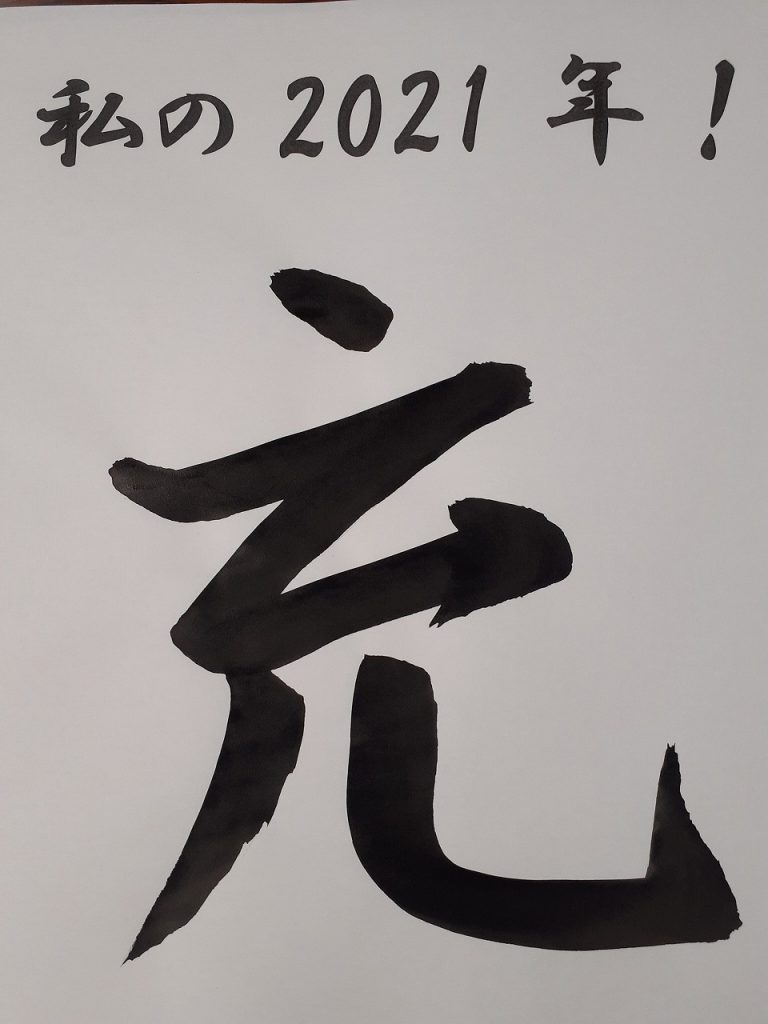 私の2021年!
充